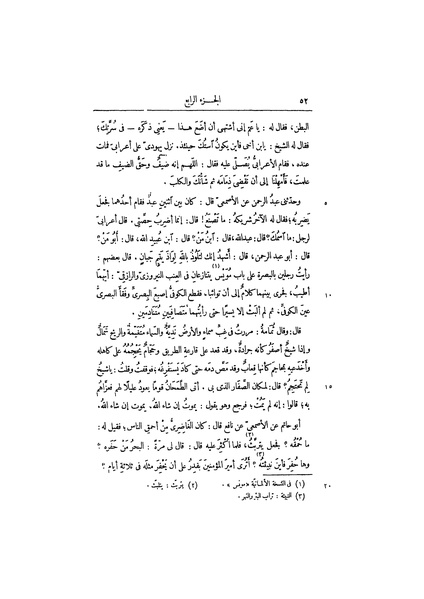 ٥٢ الجزء الرابع
البطن، فقال له: يا عم إنى أشتهى أن أضع هذا — يعنى ذكره — فى سُرّتك؛
فقال له الشيخ: يابن أخى فأين يكونُ آستُك حينئذ. نزل يهودىّ على أعرابىّ فمات
عنده. فقام الأعرابىُّ يُصلّى عليه فقال: اللهم إنه ضيفٌ وحقُّ الضيفِ ما قد
علمتَ، فأمهلنا إلى أن نقضِىَ ذِمامَه ثم شأنُك والكلب.
٥ وحدّثنى عبد الرحمن عن الأصمعىّ قال: كان بين آثنين عبدٌ فقام أحدُهما فجعل
يضربه؛ فقال له الآخرُ شريكُه: ما تصنعُ؟ قال: إنما أضرِبُ حِصّتى. قال أعرابىّ
لرجل: ما آسمُك؟ قال: عبدالله، قال: آبنُ مَنْ؟ قال: آبن عُبيد الله، قال: أبو مَنْ؟
قال: أبو عبد الرحمن، قال: أشهدُ إنك لتلوذُ بالله لِواذَ يتيمٍ جبانٍ. قال بعضهم:
رأيتُ رجلين بالبصرة على باب مُوَيْس(١) يتنازعان فى العنب النيروزى والرازقىّ: أيهما
١٠ أطيبُ، فجرى بينهما كلامٌ إلى أن تواثبا، فقطع الكوفىُّ إصبعَ البِصرىِّ وفقأ البصرىُّ
عينَ الكوفىِّ، ثم لم ألبث إلا يسيرًا حتى رأيتُهما متصافيين متنادمين.
قال: وقال ثُمامةُ: مررتُ فى غِبّ سماءٍ والأرض نديّةٌ والسماء متغيّمةٌ والريح شَمالٌ
و إذا شيخٌ أصفرُ كأنه جرادةٌ، وقد قعد على قارعة الطريق وحجّامٌ يحجُمُه على كاهله
وأخدعيه بمحاجمَ كأنها قِعابٌ، وقد مَصّ دمَه حتى كاد يستفرغُه؛ فوقفتُ وقلت: ياشيخُ
١٥ لِمَ تحتجِمُ؟ قال: لمكان الصُّفار الذى بى. أتى الطَّمَحانُ قومًا يعودُ عليلًا لهم فعزّاهم
به؛ قالوا: إنه لم يَمُتْ؛ فرجع وهو يقول: يموتُ إن شاء اللهُ. يموت إن شاء اللهُ.
أبو حاتم عن الأصمعىّ عن نافع قال: كان الغاضِرىُّ مِنْ أحمقِ الناس، فقيل له:
ما حُمْقُه؟ فجعل يتربّث(٢)، فلما أكثر عليه قال: قال لى مرةً: البحرُ مَنْ حفره؟
وها حُفِرَ فأين نبيثتُه(٣)؟ أتُرى أميرَ المؤمنين يقدِرُ على أن يَحْفِرَ مثلَه فى ثلاثة أيام؟
٢٠ (١) فى النسخة الألمانية «مونس». (٢) يتربث: يتلبث.
(٣) النبيثة: تراب البئر والنهر.